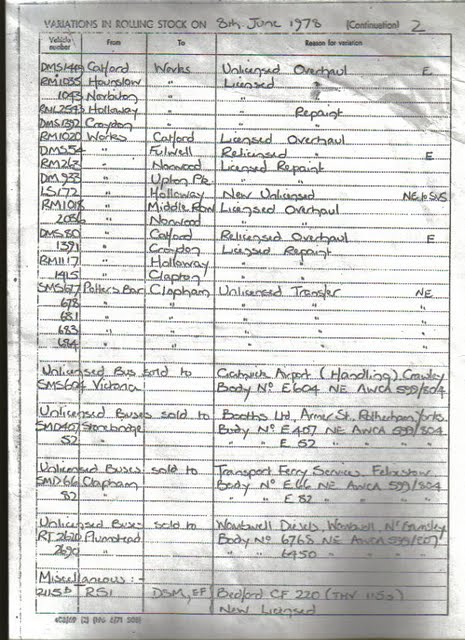 VARIATIONS IN ROLLING STOCK ON 8th June 1978 (Continuation) 2
Vehicle number From To Reason for variation
DMS1449 Catford Works Unlicensed Overhaul E
RM1035 Hounslow " Licensed "
1043 Norbiton " " "
RML2593 Holloway " " Repaint
Croydon " " "
RM1020 Works Catford Licensed Overhaul
DMS54 " Fulwell Relicensed " E
RM262 " Norwood Licensed Repaint
DM933 " Upton Pk. " "
LS172 " Holloway New Unlicensed NE to SUS
RM1018 " Middle Row Licensed Overhaul
" Norwood " "
DMS80 " Catford Relicensed Overhaul E
1391 " Croydon Licensed Repaint
RM1117 " Holloway " "
1415 " Clapton " "
SMS677 Potters Bar Clapham Unlicensed Transfer NE
678 " " " " "
681 " " " " "
683 " " " " "
684 " " " " "
Unlicensed Bus sold to Gatwick Airport (Handling) Crawley
SMS604 Victoria Body Nº E604 NE AWCA 599/804
Unlicensed Buses sold to Booths Ltd, Armer St. Rotherham
SMD407 Stonebridge Body Nº E407 NE AWCA 599/804
52 " " " E 52 " " "
Unlicensed Buses sold to Transport Ferry Services Felixstow
SMD66 Clapham Body Nº E66 NE AWCA 599/804
82 " " " E 82 " " "
Unlicensed Buses sold to Wombwell Diesels Wombwell Nr Barnsley
RT2620 Plumstead Body Nº 6765 NE AWCA
2690 " " " 6450 " " "
Miscellaneous :-
2115B RS1 DSM, EF Bedford CF 220 (THV 115S)
New Licensed